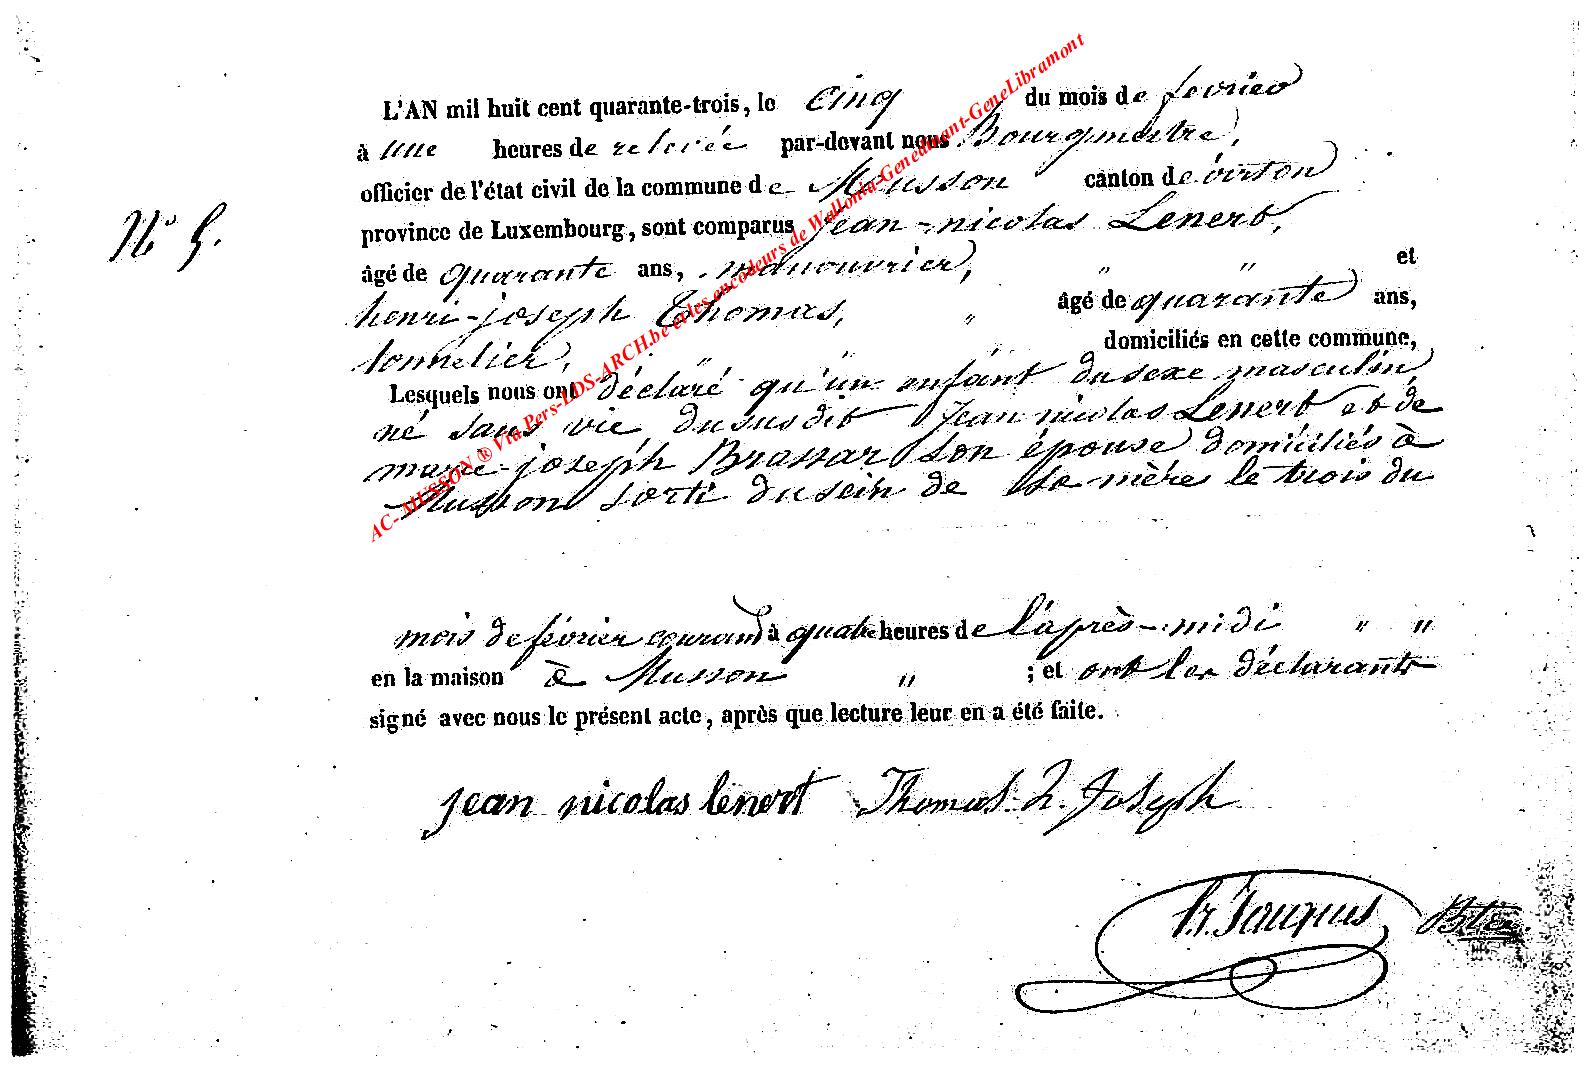 L'AN mil huit cent quarante-trois, le cinq du mois de fevrier
à une heures de relevée par-devant nous Bourgmestre,
officier de l'état civil de la commune de Musson canton de virton
N° 5.
province de Luxembourg, sont comparus jean-nicolas Lenert,
âgé de quarante ans, manouvrier, " " et
henri-joseph Thomas, " âgé de quarante ans,
tonnelier, " " " domiciliés en cette commune,
Lesquels nous ont déclaré qu'un enfant du sexe masculin
né sans vie du susdit Jean nicolas Lenert et de
marie-joseph Brassar son épouse domiciliés à
Musson sorti du sein de sa mère le trois du
mois de février courant à quatre heures de l'après-midi " "
en la maison à Musson " ; et ont les déclarants
signé avec nous le présent acte, après que lecture leur en a été faite.
jean nicolas lenert Thomas h. Joseph
Jacques
AC- MUSSON ® Via Pers-LDS-ARCH.be et les encodeurs de Wallonia-Genedinant-GeneLibramont